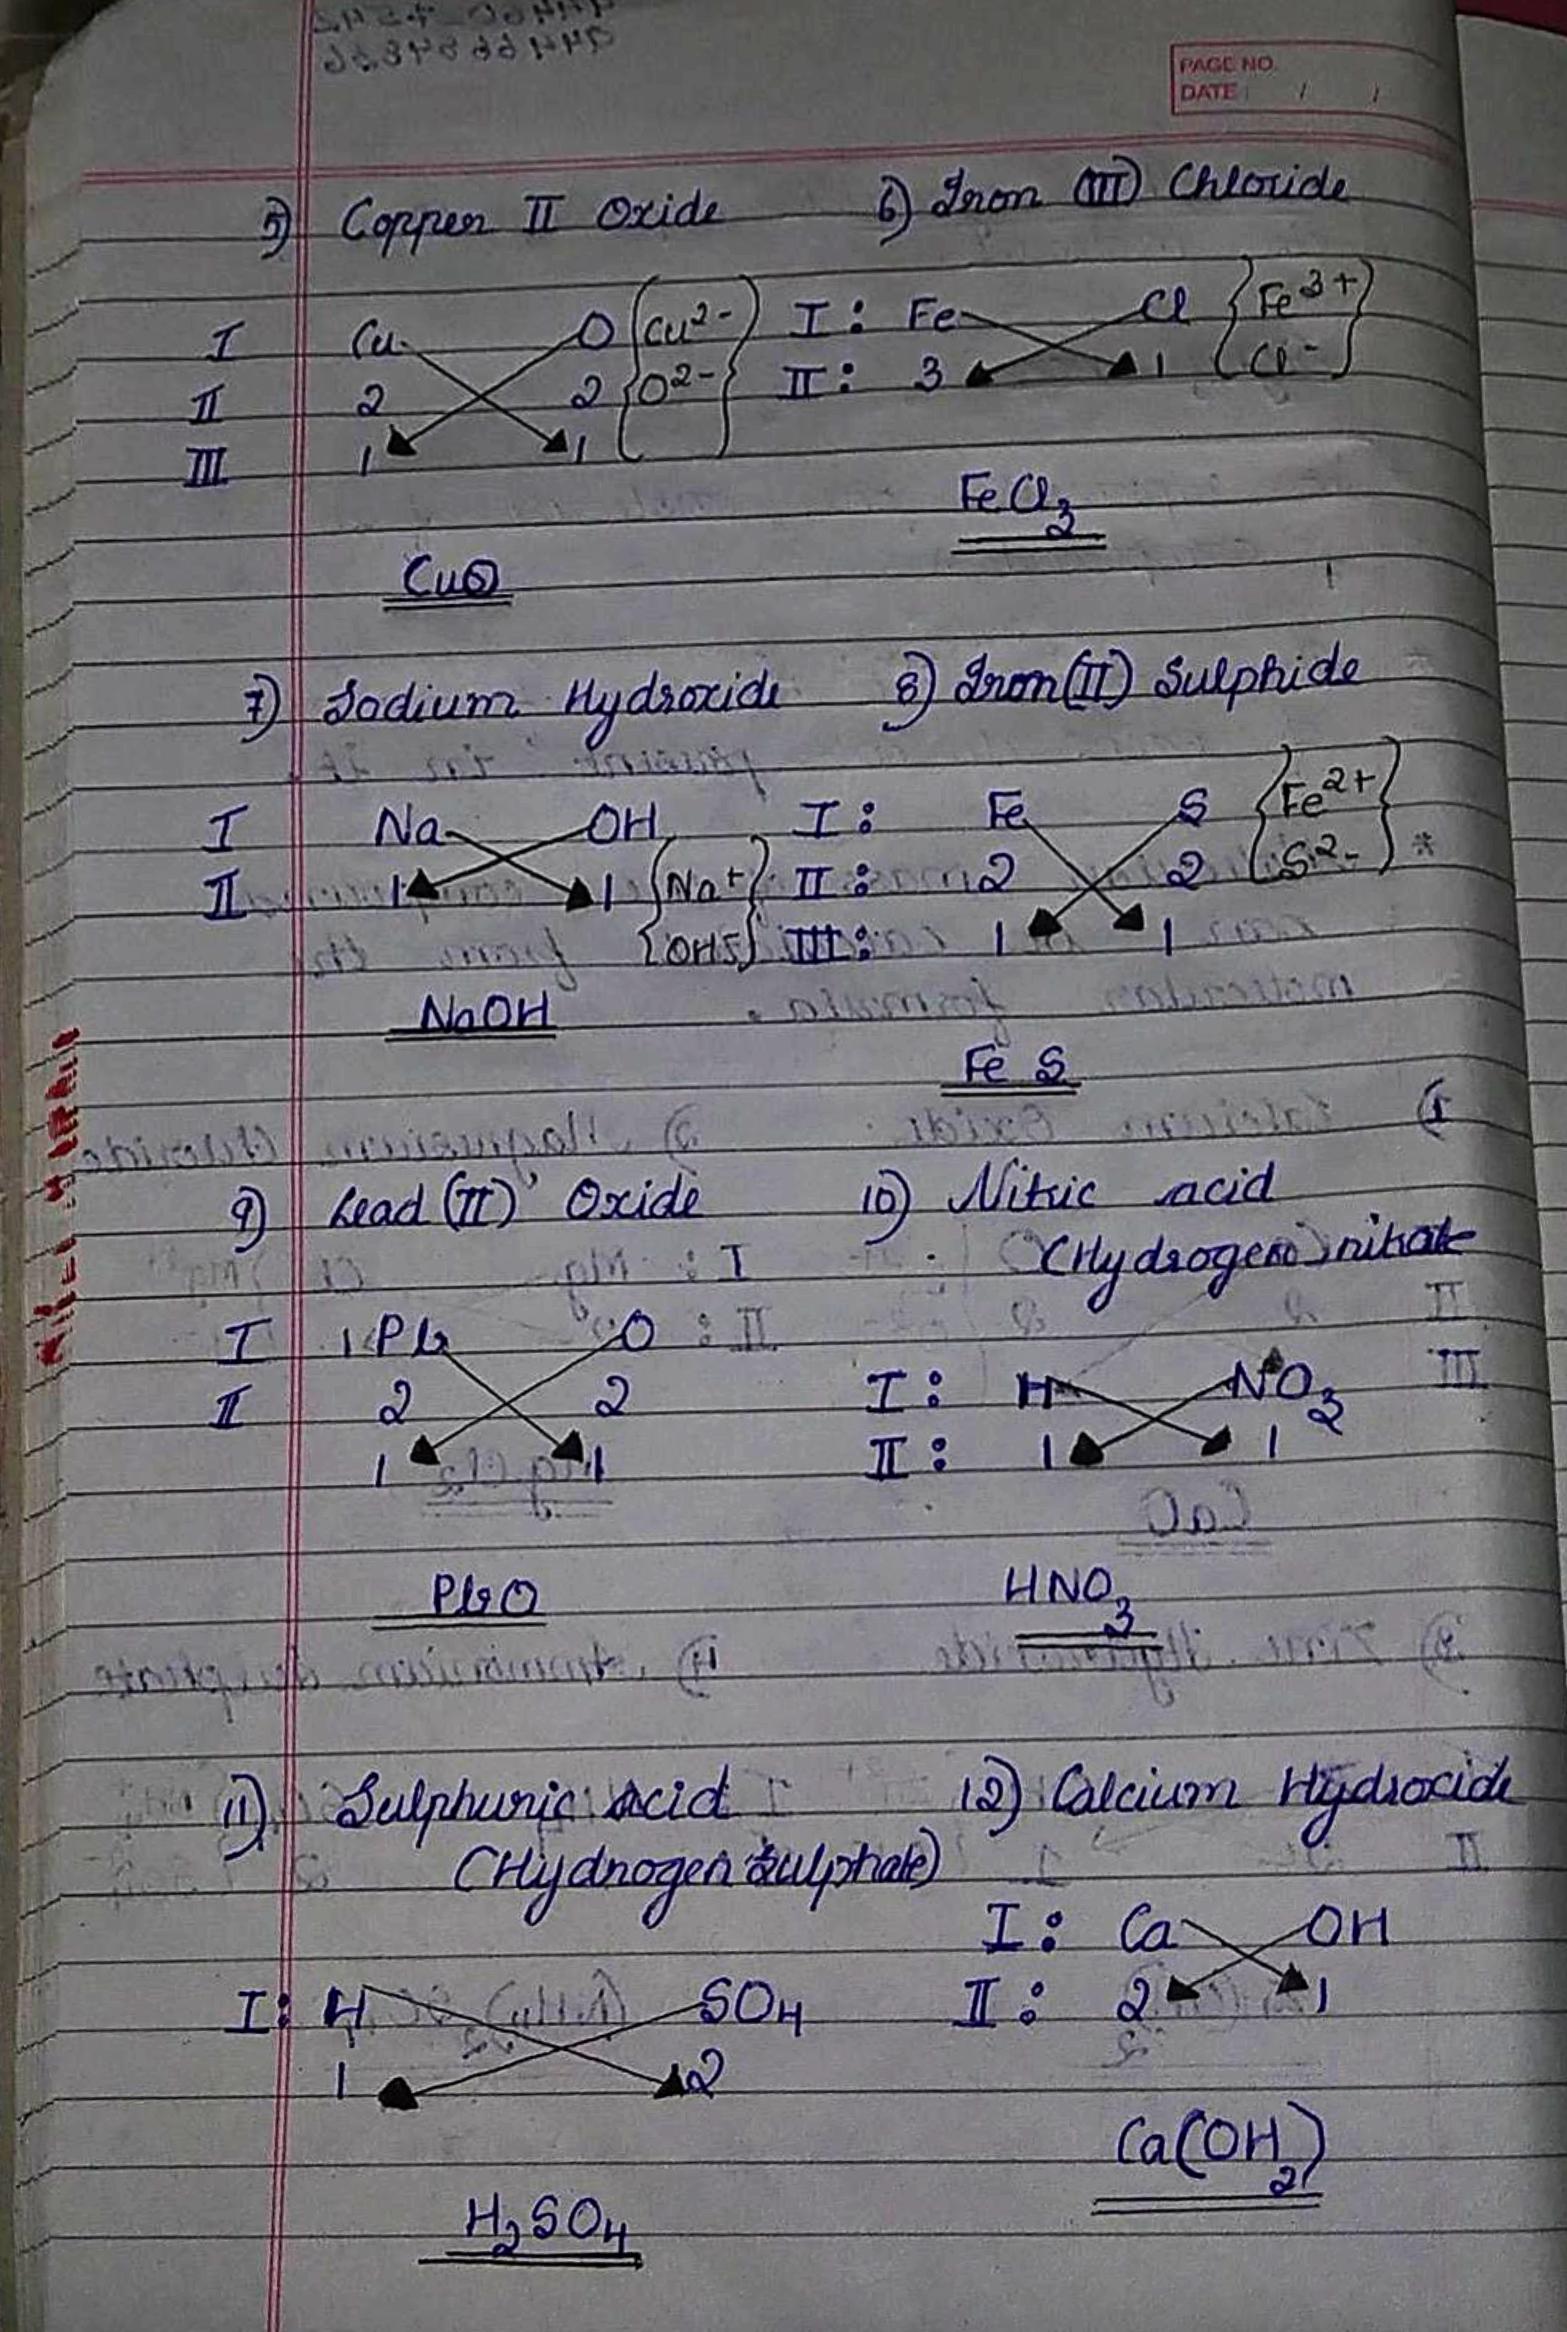 PAGE NO.
DATE: / /
5) Copper II Oxide
I Cu O {Cu2-
II 2 2 O2-}
III 1 1
CuO
6) Iron (III) Chloride
I: Fe Cl {Fe3+
II: 3 1 Cl-}
FeCl3
7) Sodium Hydroxide
I Na OH
II 1 1 {Na+
OH-}
NaOH
8) Iron(II) Sulphide
I: Fe S {Fe2+
II: 2 2 S2-} *
III: 1 1
Fe S
9) Lead (II) Oxide
I Pb O
II 2 2
1 1
PbO
10) Nitric acid
(Hydrogen) nitrate
I: H NO3
II: 1 1
HNO3
11) Sulphuric Acid
(Hydrogen sulphate)
I: H SO4
1 2
H2SO4
12) Calcium Hydroxide
I: Ca OH
II: 2 1
Ca(OH2)